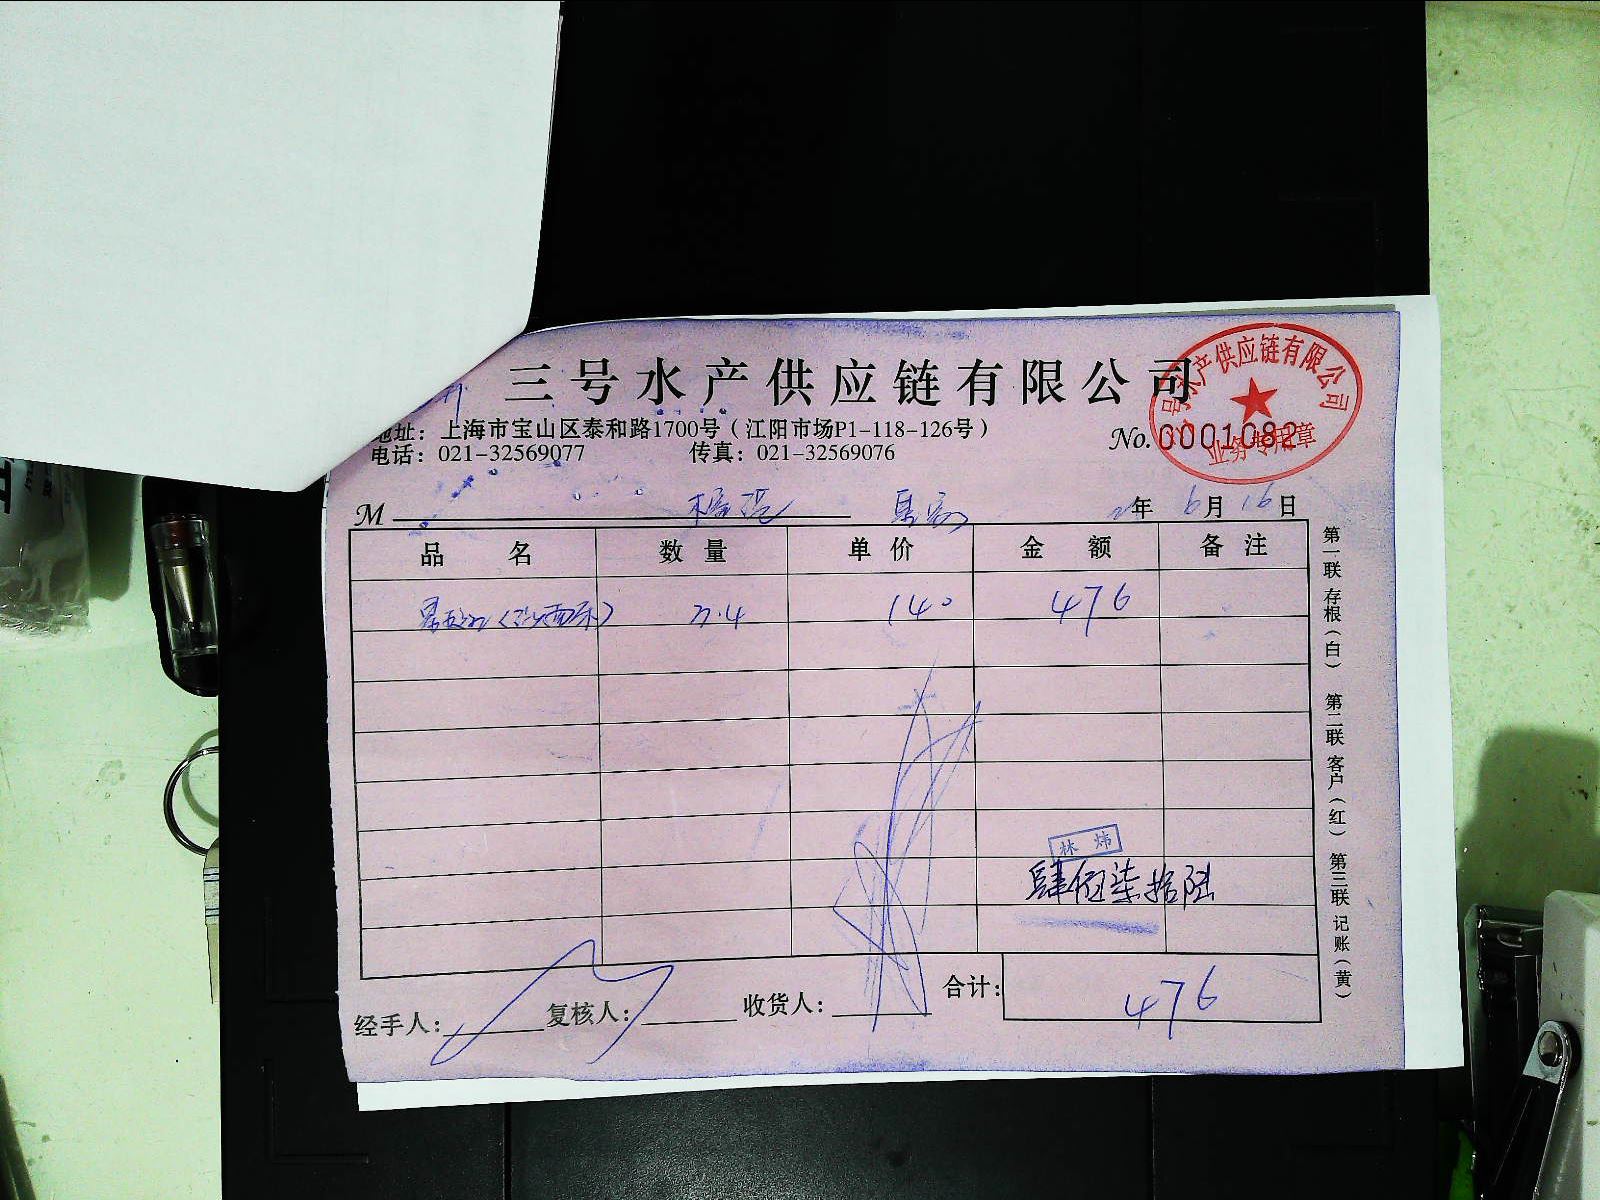 三号水产供应链有限公司
地址：上海市宝山区泰和路1700号（江阳市场P1-118-126号）
电话：021-32569077 传真：021-32569076
No. 0001082
号水产供应链有限公司
业务专用章
M 年 6月 16日
品名 数量 单价 金额 备注
140 476
林炜
肆佰柒拾陆
合计： 476
经手人： 复核人： 收货人：
第一联 存根（白） 第二联 客户（红） 第三联 记账（黄）